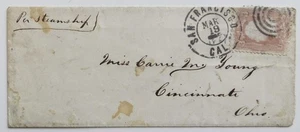 Per Steamship
SAN FRANCISCO
MAR
19
CAL
Miss Carrie Mc Young
Cincinnati
Ohio.